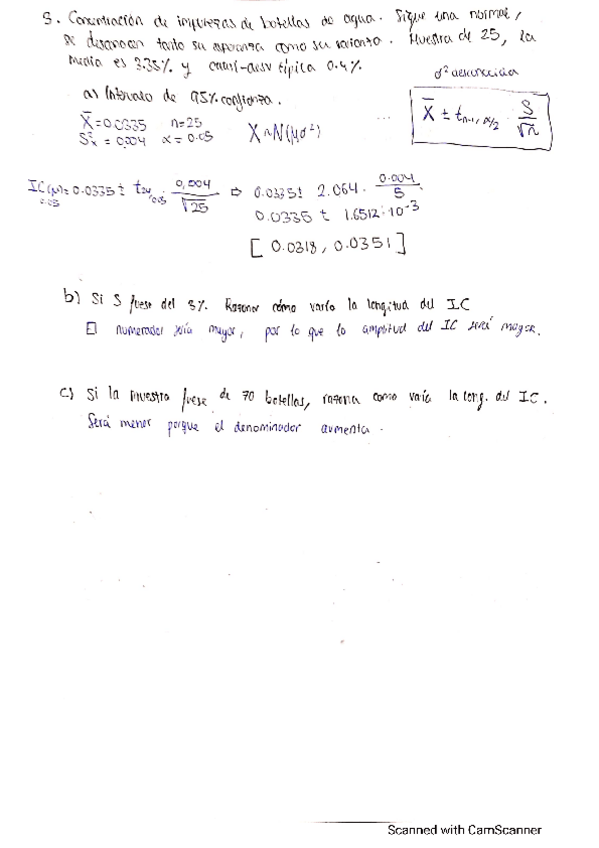 3. Concentración de impurezas de botellas de agua. Sigue una normal,
se desconocen tanto su esperanza como su varianza. Muestra de 25, la
media es 3.35% y cuasi-desv típica 0.4%.
σ² desconocida
a) Intervalo de 95% confianza.
X̄ = 0.0335 n=25
S²x = 0.004 α = 0.05
X ~ N(μ σ²)
X̄ ± t n-1, α/2 · S/√n
IC(μ) 0.05 = 0.0335 ± t24 0.05 · 0,004/√25 ⇒ 0.0335 ± 2.064 · 0.004/5
0.0335 ± 1.6512·10⁻³
[ 0.0318, 0.0351 ]
b) Si S fuese del 3%. Razonar cómo varía la longitud del IC
El numerador sería mayor, por lo que la amplitud del IC será mayor.
c) Si la muestra fuese de 70 botellas, razona como varía la long. del IC.
Será menor porque el denominador aumenta.
Scanned with CamScanner